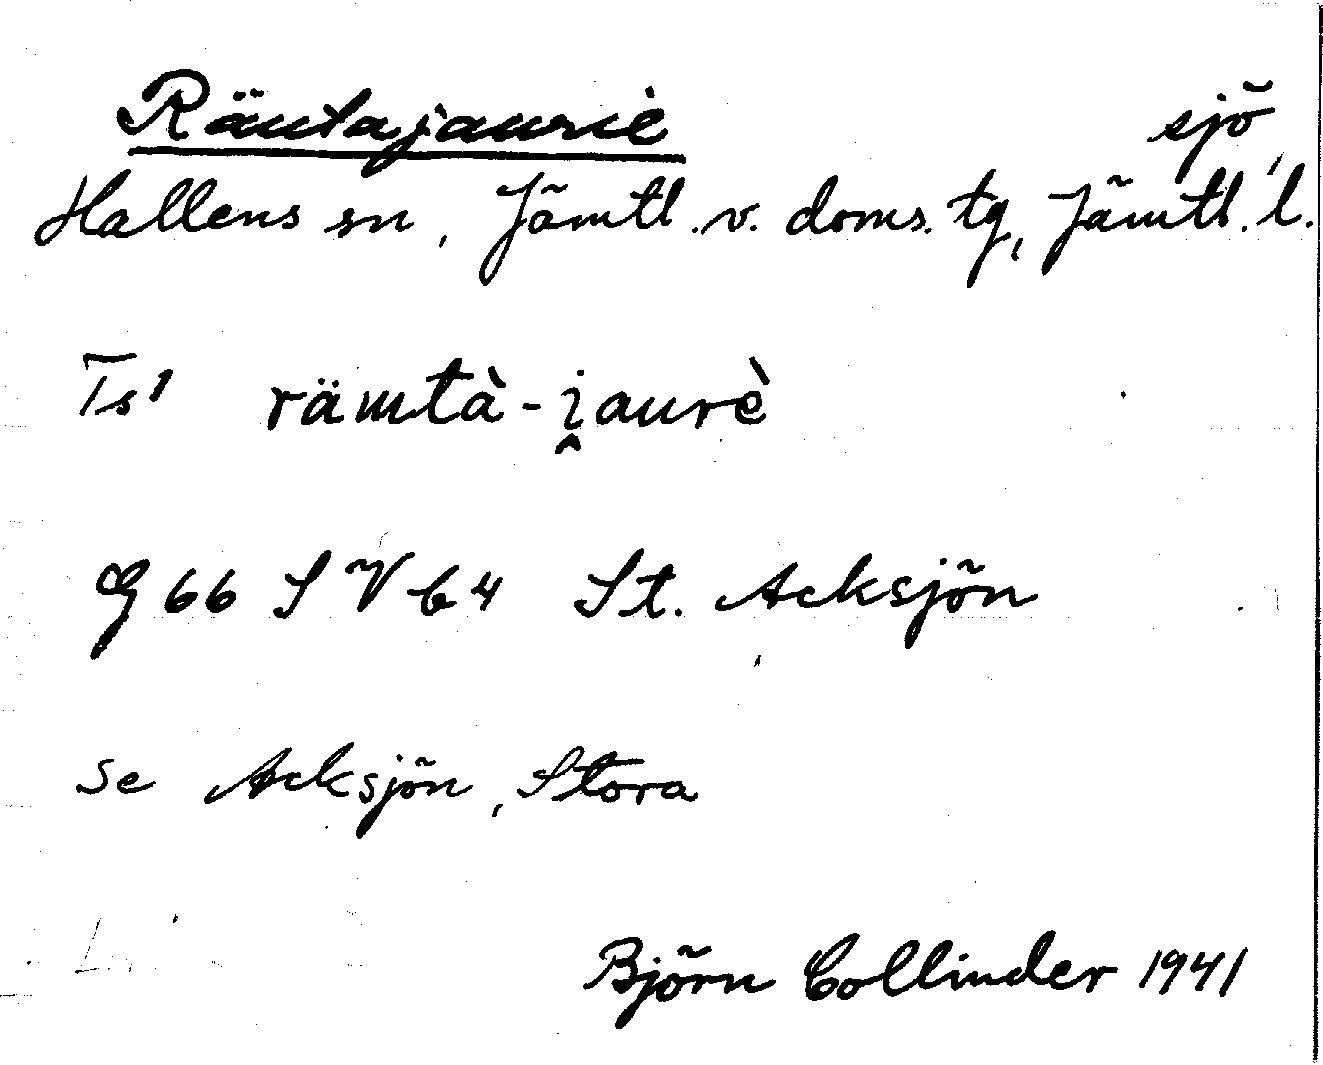 Räutajauriè sjö
Hallens sn, Jämtl. v. doms. tg, Jämtl. l.
Ts¹ rämtà-i̯aurè
G 66 S V b 4 St. Acksjön
se Acksjön, Stora
Björn Collinder 1941